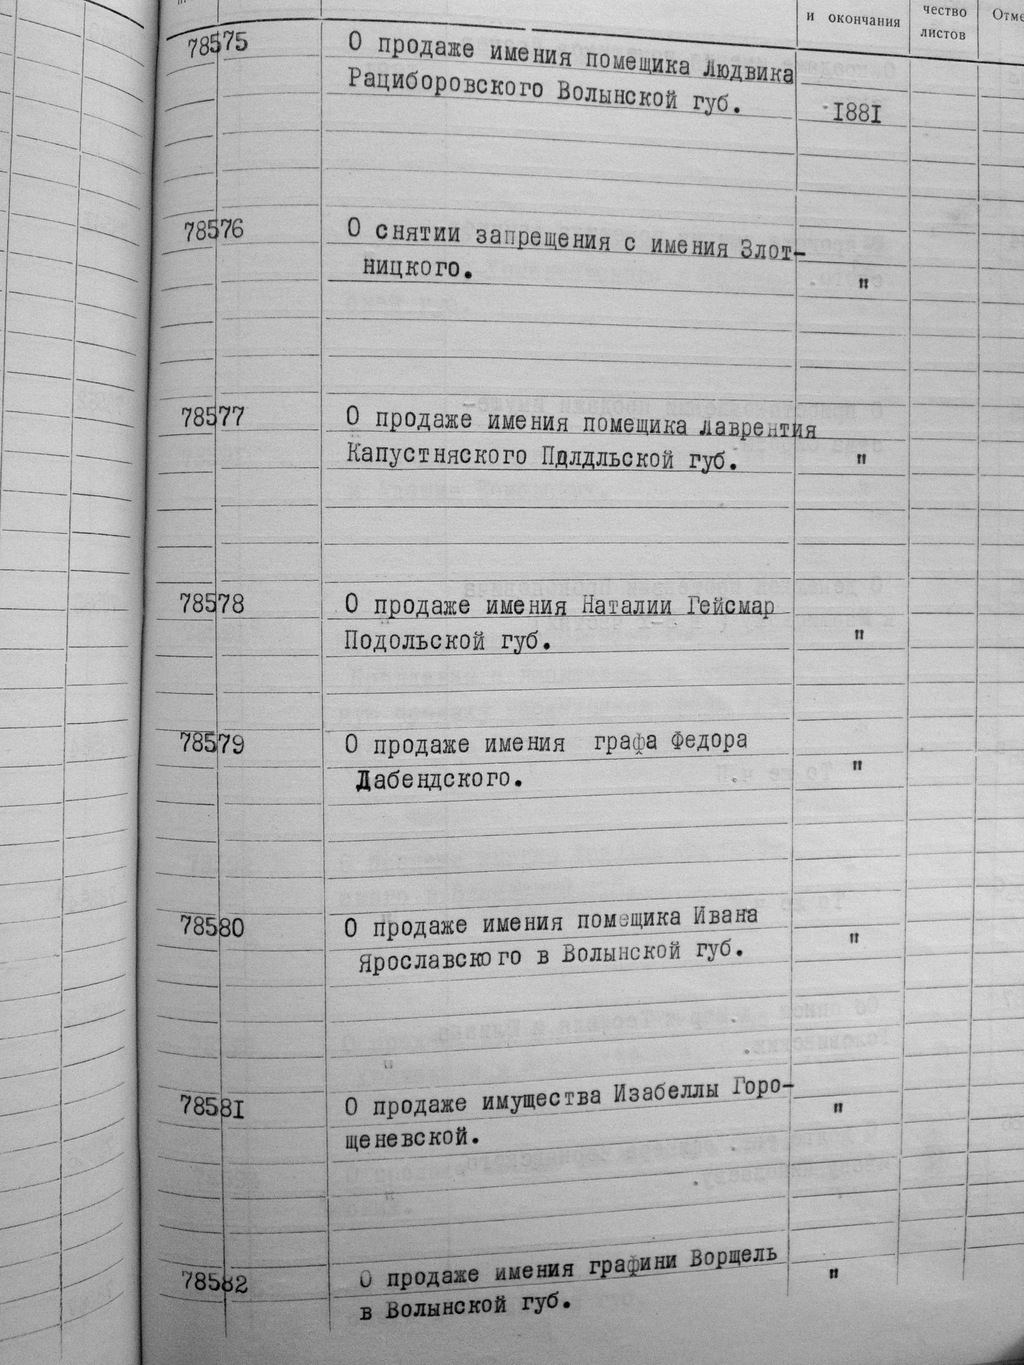 и окончания
чество
листов
Отме
78575
О продаже имения помещика Людвика
Рациборовского Волынской губ.
1881
78576
О снятии запрещения с имения Злот-
ницкого.
"
78577
О продаже имения помещика Лаврентия
Капустняского Пдлдльской губ.
"
78578
О продаже имения Наталии Гейсмар
Подольской губ.
"
78579
О продаже имения графа Федора
Дабендского.
"
78580
О продаже имения помещика Ивана
Ярославского в Волынской губ.
"
78581
О продаже имущества Изабеллы Горо-
щеневской.
"
78582
О продаже имения графини Ворщель
в Волынской губ.
"